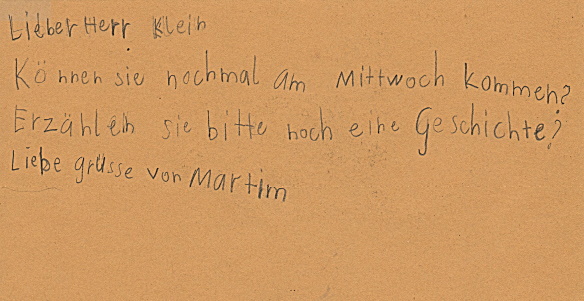 Lieber Herr Klein
Können sie nochmal am Mittwoch kommen?
Erzählen sie bitte noch eine Geschichte?
Liebe grüsse von Martim